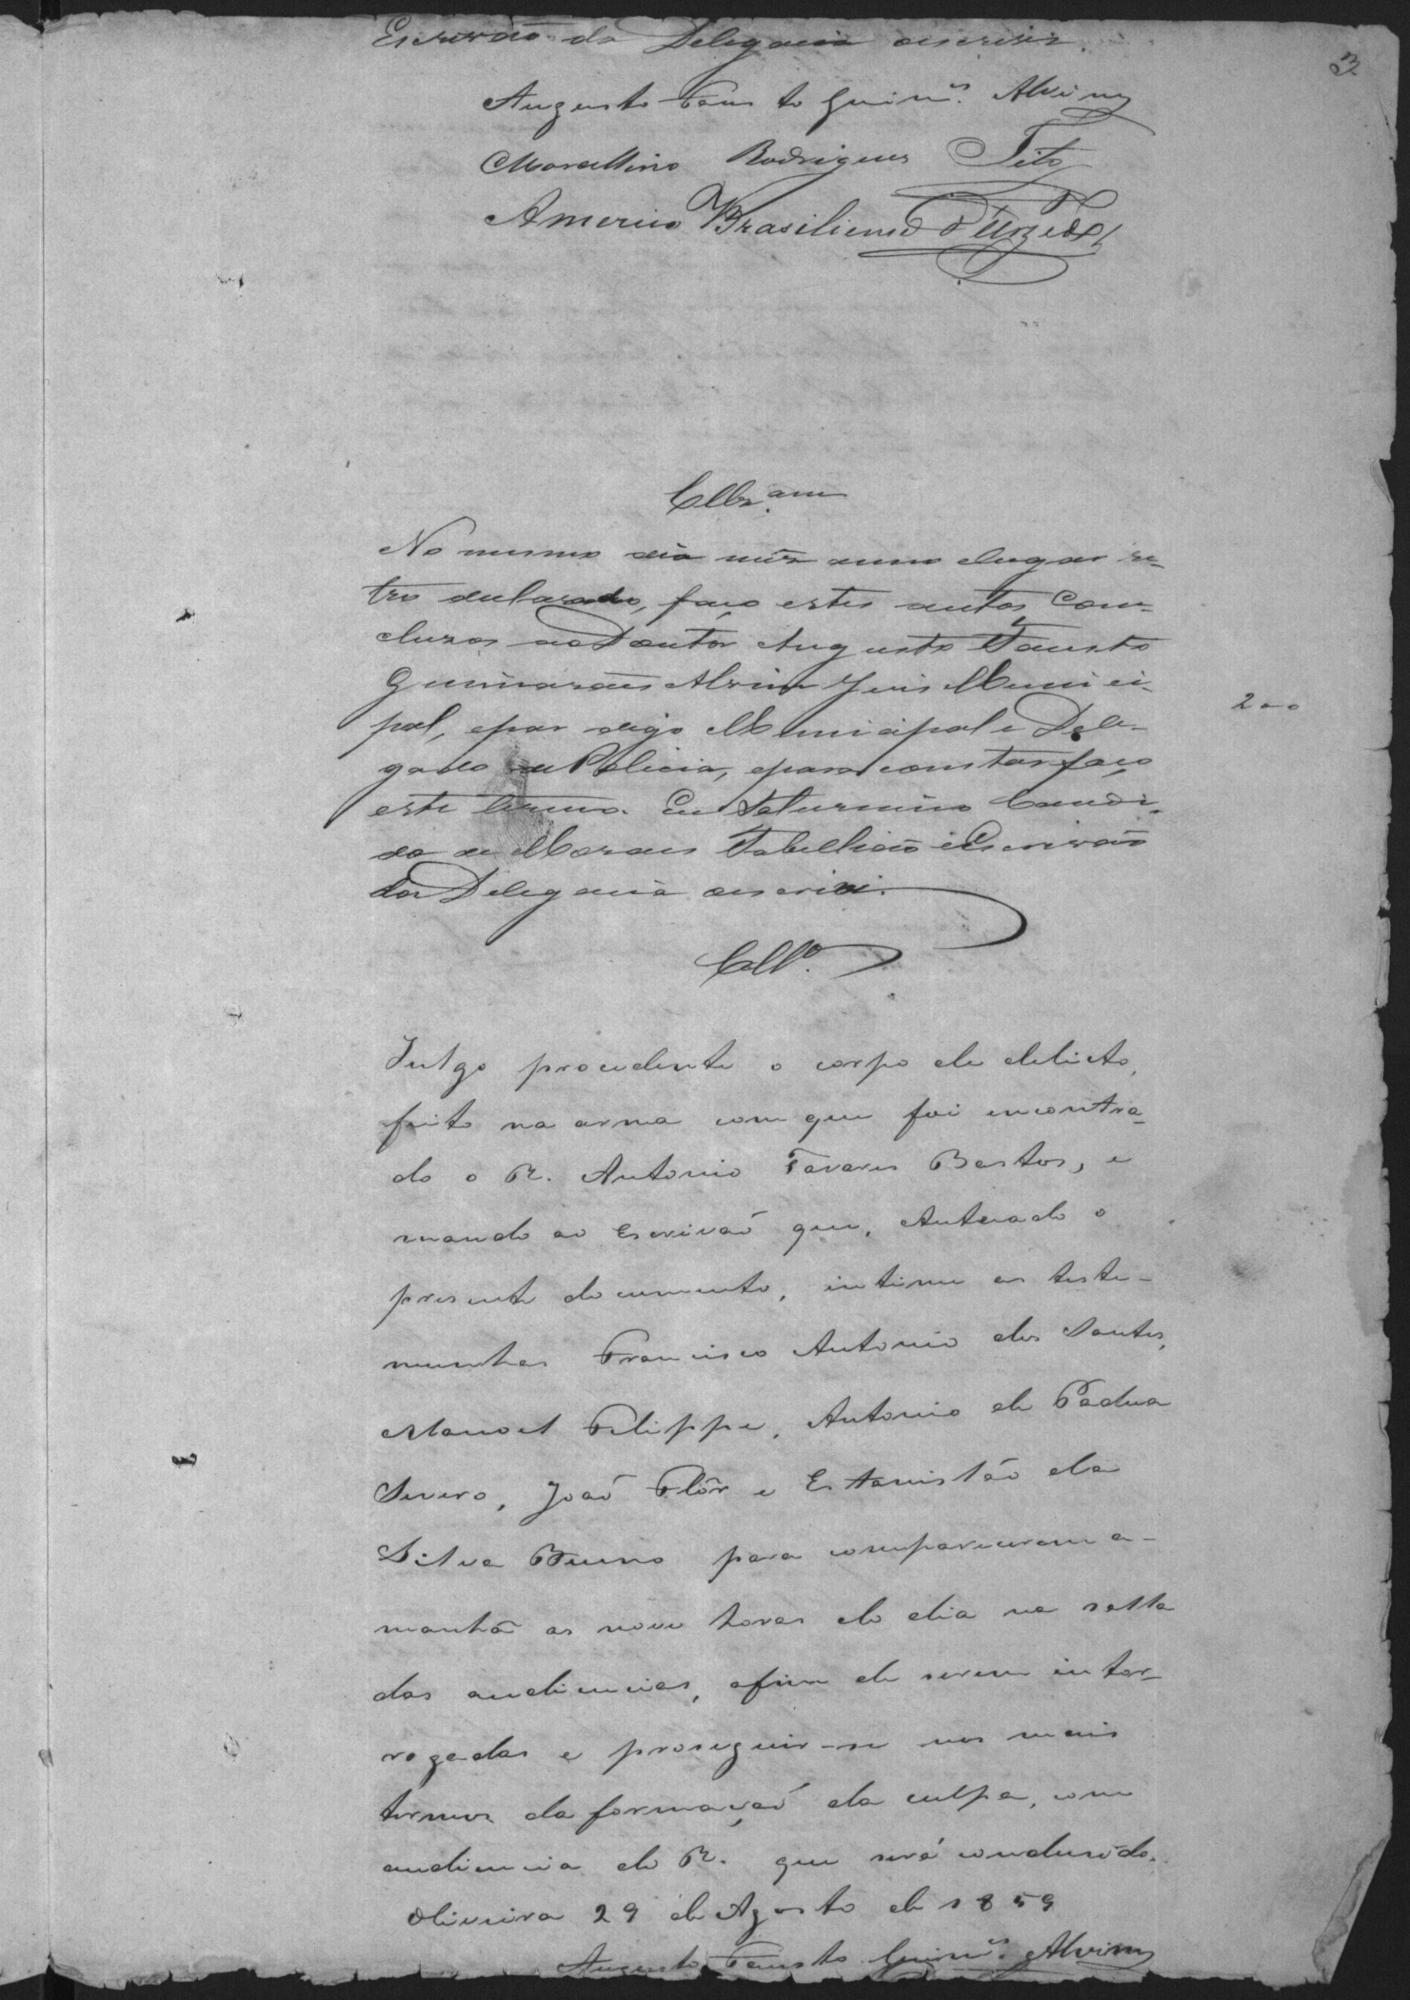 Escrivão da Delegacia oescrivi.
3
Augusto Fausto Guim.es Alvim
Marcellino Rodrigues Tito
Americo Brasiliense
Cllz.am
No mesmo dia mês anno elugar re-
tro declarado, faço estes autos Con-
cluzos aoDoutor Augusto Fausto
Guimarães Alvim Juis Munici-
pal, epar digo Municipal e Dele-
gado de Policia, epara constar faço
este termo. Eu Saturnino Candi-
do de Moraes Tabellião eEscrivão
da Delegacia oescrivi.
200
Cllº.
Julgo procedente o corpo de delicto,
feito na arma com que foi encontra-
do o R. Antonio Tavares Bastos, e
mando ao Escrivaõ que, Autuado o
presente documento, intime as teste-
munhas Francisco Antonio dos Santos,
Manoel Felippe, Antonio de Padua
Severo, Joaõ Flôr e Estanislão da
Silva Bueno para compareceram a-
manhã as nove horas do dia na salla
das audiencias, afim de serem inter-
rogadas e proseguir-se nos mais
termos da formaçaõ da culpa, com
audiencia do R. que será condusido.
Oliveira 29 de Agosto de 1859
Augusto Fausto Guim.es Alvim